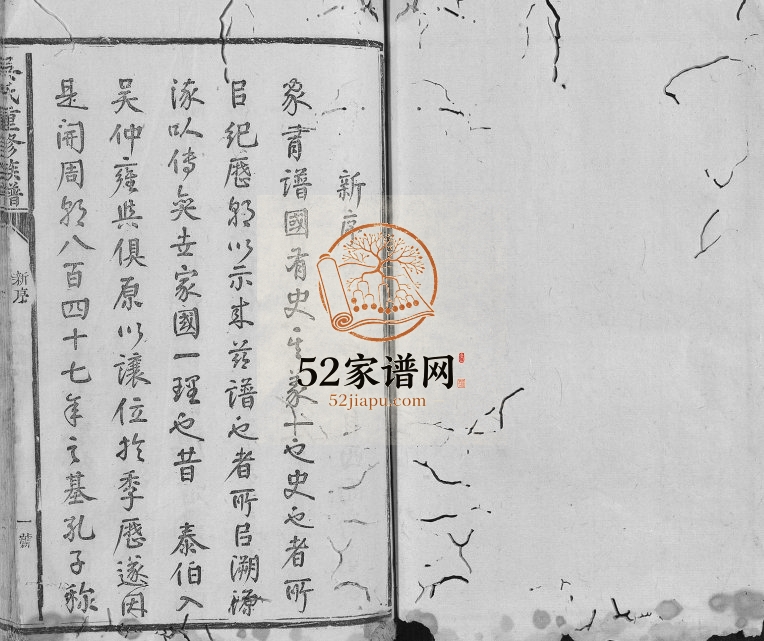 新序
家有譜國有史其義一也史也者所
㠯紀歷朝以示來茲譜也者所㠯溯
以傳奕世家國一理也昔 泰伯入
吳仲雍與俱原以讓位於季歷遂因
是開周朝八百四十七年之基孔子稱
吳氏重修族譜
新序
一
52家谱网
52jiapu.com